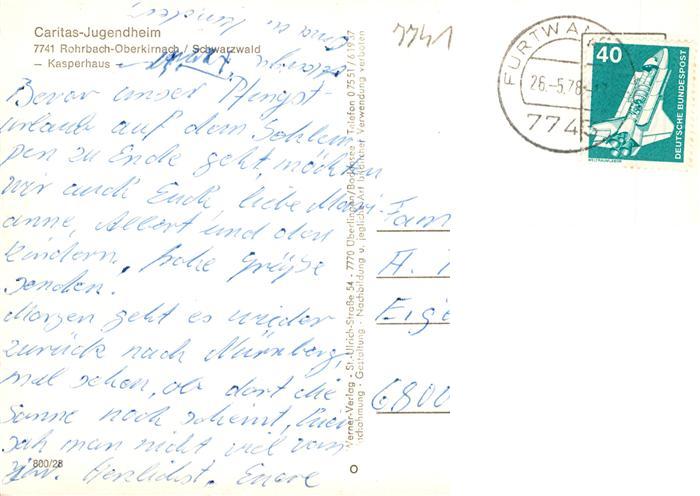 Caritas-Jugendheim
7741 Rohrbach-Oberkirnach / Schwarzwald
— Kasperhaus —
Bevor unser Pfingst-
urlaub auf dem
zu Ende geht, möchten
wir auch Euch, liebe Mari-
anne, Albert und den
Kindern, frohe Grüße
senden.
Morgen geht es wieder
zurück nach Nürnberg,
mal sehen, ob dort die
Sonne noch scheint, hier
sah man nicht viel von
ihr. Herzlichst, Eure
800/28
Verner-Verlag - St.-Ulrich-Straße 54 - 7770 Überlingen/Bodensee - Telefon 0 75 51 / 6 19 37
Nachahmung - Gestaltung - Nachbildung u. jegliche Art bildlicher Verwendung verboten
7741
FURTWA
26.-5.78
774
40
DEUTSCHE BUNDESPOST
WELTRAUMLABOR
Fam
A.
Eige
6800